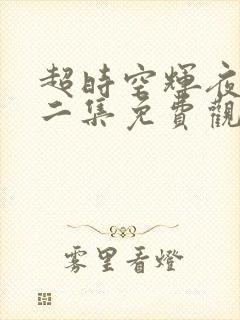 超時空輝夜
二集免費觀
雾里看燈